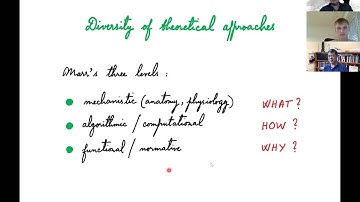 Diversity of theoretical approaches
Marr's three levels :
mechanistic (anatomy, physiology) WHAT ?
algorithmic / computational HOW ?
functional / normative WHY ?